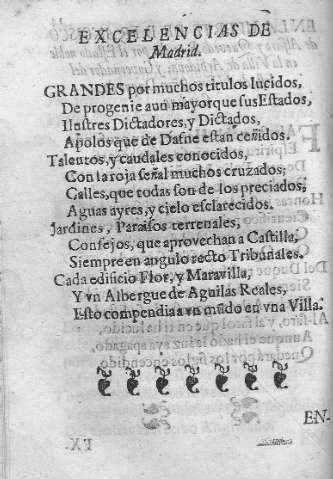 EXCELENCIAS DE
Madrid.
GRANDES por muchos titulos lucidos,
De progenie aun mayor que sus Estados,
Ilustres Dictadores, y Dictados,
Apolos que de Dafne estan ceñidos.
Talentos, y caudales conocidos,
Con la roja señal muchos cruzados;
Calles, que todas son de los preciados,
Aguas ayres, y cielo esclarecidos.
Jardines, Paraisos terrenales,
Consejos, que aprovechan a Castilla,
Siempre en angulo recto Tribunales.
Cada edificio Flor, y Maravilla,
Y vn Albergue de Aguilas Reales,
Esto compendia a vn mũdo en vna Villa.
EN-